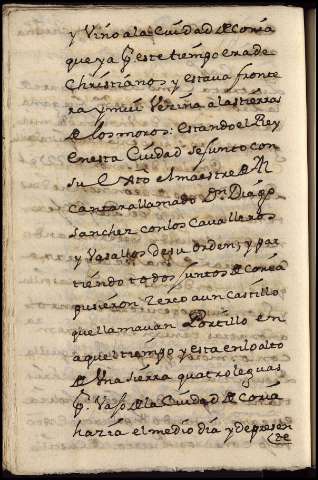 y Vino a la Ciudad de Coria
que ya pr. este tiempo era de
Christianos y estava fronte
ra y mui Vezina a las tierras
de los moros: Estando el Rey
en esta Ciudad se junto con
su Exto el maestre de Al
cantara llamado Dn. Diago
Sanchez con los Cavalleros
y Vasallos de su orden; y par
tiendo todos juntos de Coria
pusieron zerco a un Castillo
que llamavan Portillo en
aquel tiempo y esta en lo alto
de Una sierra quatro leguas
pr. Vajo de la Ciudad de Coria
hazia el medio dia y de presen
te